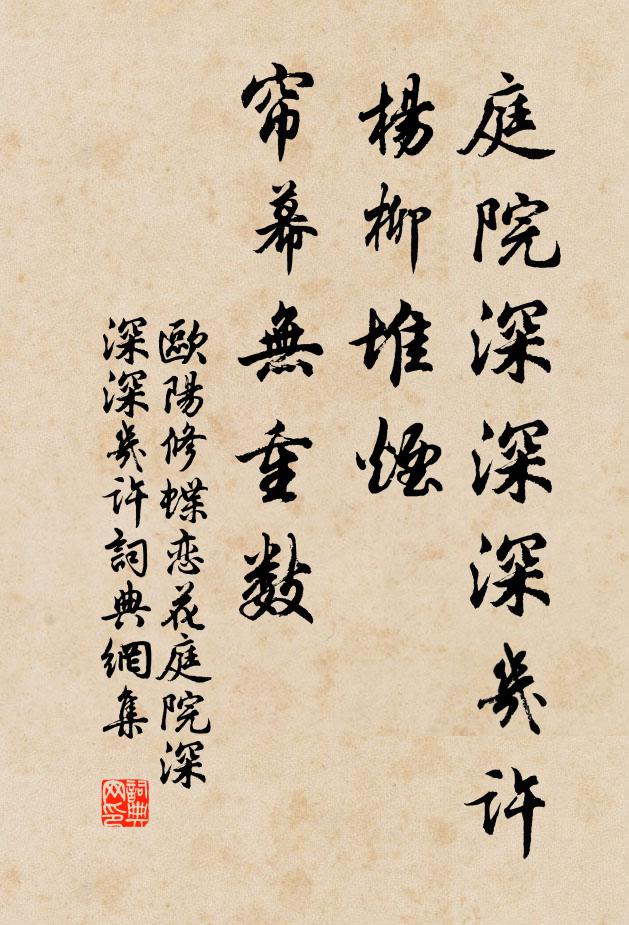 庭院深深深幾許
楊柳堆煙
帘幕無重數
歐陽修蝶恋花庭院深
深深幾許詞典網集
詞典
网印